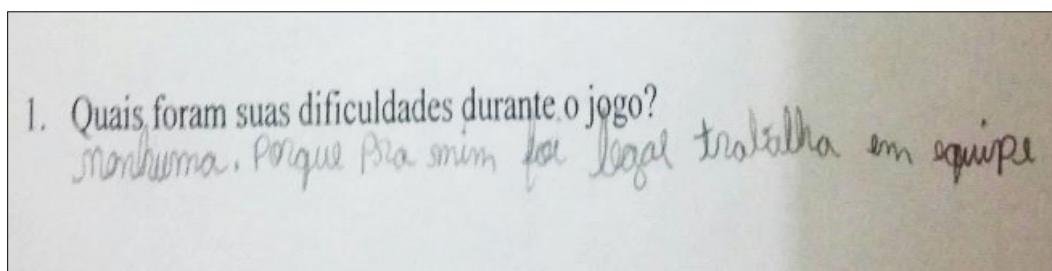 1. Quais foram suas dificuldades durante o jogo?
nenhuma. Porque pra mim foi legal trabalha em equipe